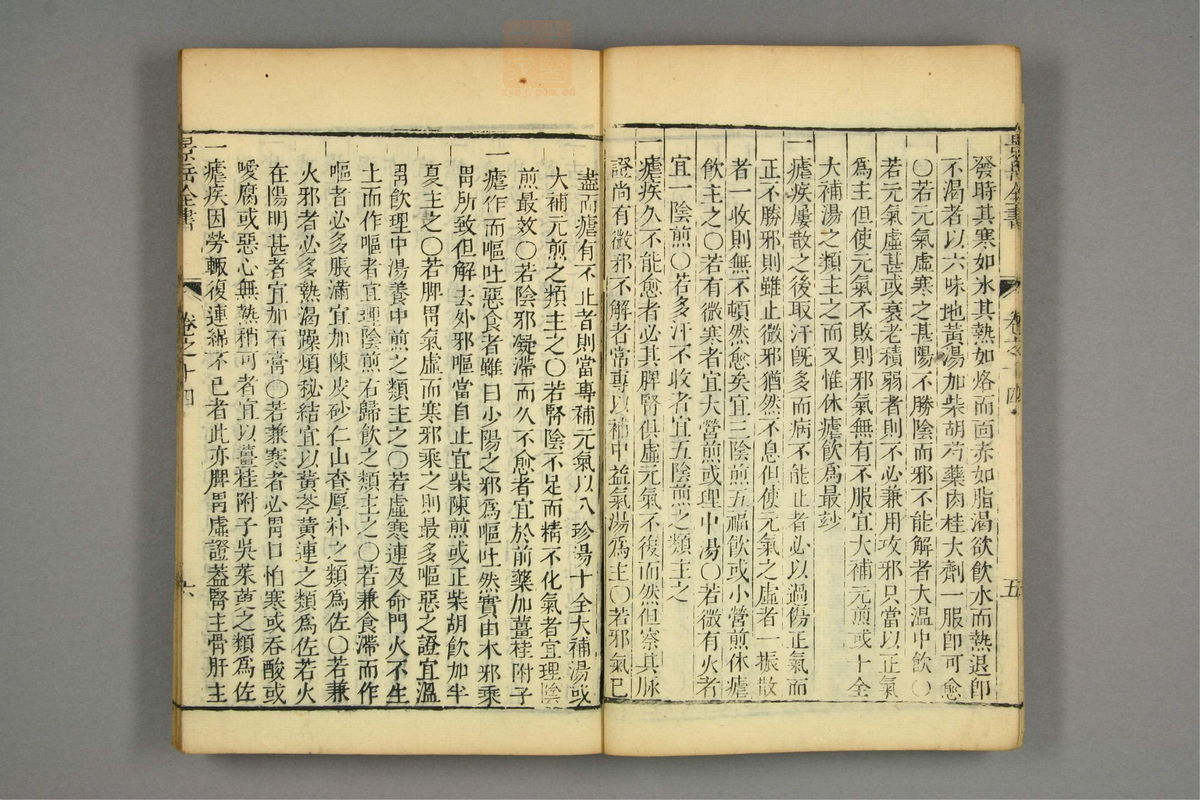 景岳全書
卷之十四
五
發時其寒如氷其熱如烙而面赤如脂渴欲飲水而熱退卽
不渴者以六味地黃湯加柴胡芍藥肉桂大劑一服卽可愈
〇若元氣虛寒之甚陽不勝陰而邪不能解者大溫中飲〇
若元氣虛甚或衰老積弱者則不必兼用攻邪只當以正氣
爲主但使元氣不敗則邪氣無有不服宜大補元煎或十全
大補湯之類主之而又惟休瘧飲爲最玅
一瘧疾屢散之後取汗旣多而病不能止者必以過傷正氣而
正不勝邪則雖止微邪猶然不息但使元氣之虛者一振散
者一收則無不頓然愈矣宜三陰煎五福飲或小營煎休瘧
飲主之〇若有微寒者宜大營煎或理中湯〇若微有火者
宜一陰煎〇若多汗不收者宜五陰煎之類主之
一瘧疾久不能愈者必其脾腎俱虛元氣不復而然但察其脉
證尚有微邪不解者當專以補中益氣湯爲主〇若邪氣已
盡而瘧有不止者則當專補元氣以八珍湯十全大補湯或
大補元煎之類主之〇若腎陰不足而精不化氣者宜理陰
煎最效〇若陰邪凝滯而久不愈者宜於前藥加薑桂附子
一瘧作而嘔吐惡食者雖曰少陽之邪爲嘔吐然實由木邪乘
胃所致但解去外邪嘔當自止宜柴陳煎或正柴胡飲加半
夏主之〇若脾胃氣虛而寒邪乘之則最多嘔惡之證宜溫
胃飲理中湯養中煎之類主之〇若虛寒連及命門火不生
土而作嘔者宜理陰煎右歸飲之類主之〇若兼食滯而作
嘔者必多脹滿宜加陳皮砂仁山查厚朴之類爲佐〇若兼
火邪者必多熱渴躁煩秘結宜以黃芩黃連之類爲佐若火
在陽明甚者宜加石膏〇若兼寒者必胃口怕寒或吞酸或
噯腐或惡心無熱稍可者宜以薑桂附子吳茱萸之類爲佐
一瘧疾因勞輒復連綿不已者此亦脾胃虛證葢腎主骨肝主
景岳全書
卷之十四
六